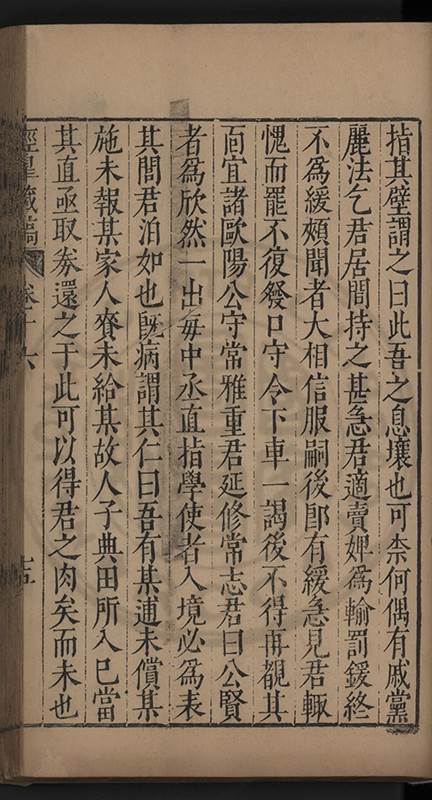 指其壁謂之曰此吾之息壤也可柰何偶有戚黨
麗法乞君居間持之甚急君適賣婢爲輸罰鍰終
不爲緩頰聞者大相信服嗣後卽有緩急見君輙
愧而罷不復發口守令下車一謁後不得再覩其
面宜諸歐陽公守常雅重君延修常志君曰公賢
者爲欣然一出每中丞直指學使者入境必爲表
其閭君泊如也旣病謂其仁曰吾有某逋未償某
施未報某家人賚未給某故人子典田所入已當
其直亟取劵還之于此可以得君之肉矣而未也
經皐藏稿
卷十六
十五